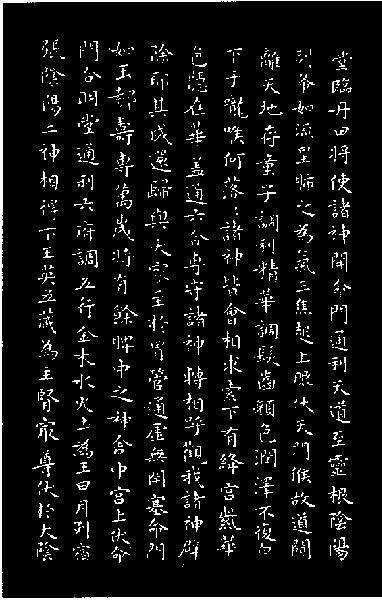 堂臨丹田將使諸神開命門通利天道至靈根陰陽
列布如流星肺之為氣三焦起上服伏天門候故道闚
離天地存童子調利精華調髮齒顏色潤澤不復白
下于嚨喉何落落諸神皆會相求索下有絳宮紫華
色隱在華蓋通六合專守諸神轉相呼觀我諸神辟
除耶其成還歸與大家至於胃管通虛無閉塞命門
如玉都壽專萬歲將有餘脾中之神舍中宮上伏命
門合明堂通利六府調五行金木水火土為王日月列宿
張陰陽二神相得下玉英五藏為主腎最尊伏於大陰